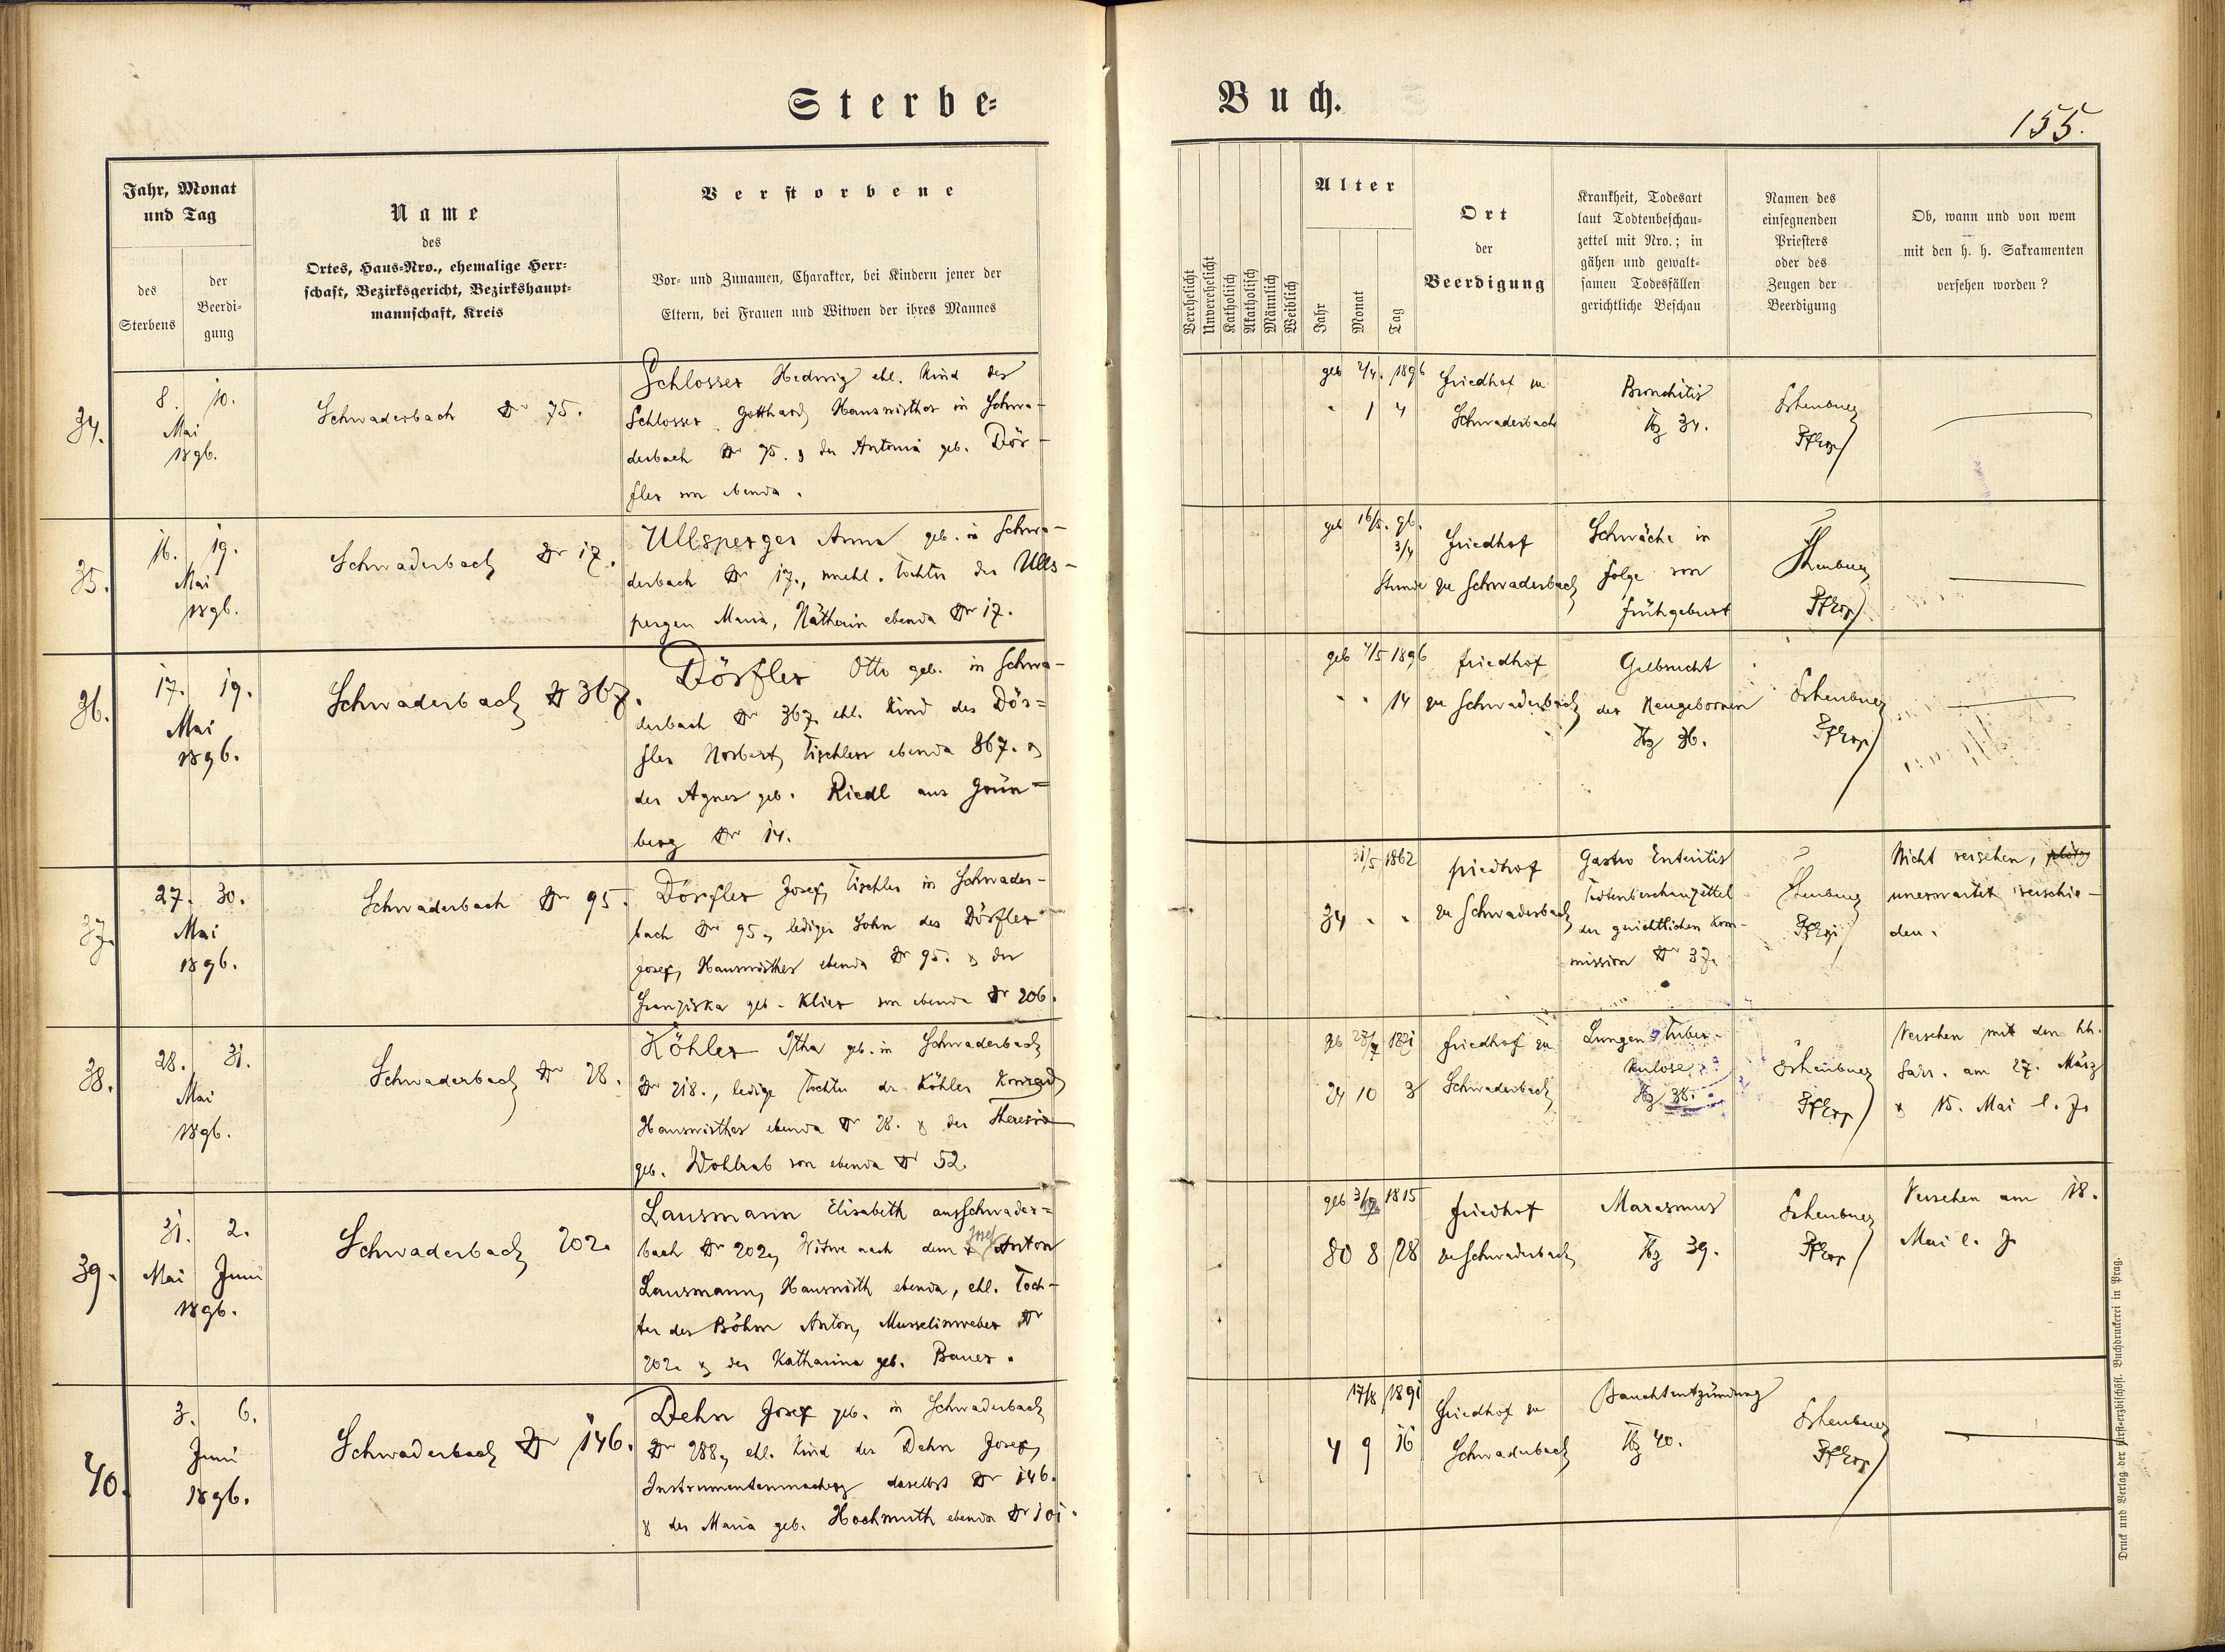 Sterbe-
Buch.
155.
Jahr, Monat
und Tag
des
Sterbens
der
Beerdi-
gung
Name
des
Ortes, Haus-Nro., ehemalige Herr-
schaft, Bezirksgericht, Bezirkshaupt-
mannschaft, Kreis
Verstorbene
Vor- und Zunamen, Charakter, bei Kindern jener der
Eltern, bei Frauen und Witwen der ihres Mannes
Verehelicht
Unverehelicht
Katholisch
Akatholisch
Männlich
Weiblich
Alter
Jahr
Monat
Tag
Ort
der
Beerdigung
Krankheit, Todesart
laut Todtenbeschau-
zettel mit Nro.; in
gähen und gewalt-
samen Todesfällen
gerichtliche Beschau
Namen des
einsegnenden
Priesters
oder des
Zeugen der
Beerdigung
Ob, wann und von wem
mit den h. h. Sakramenten
versehen worden?
34.
8. 10.
Mai
1896.
Schwaderbach Nr 75.
Schlosser Hedwig ehl. Kind des
Schlosser Gotthard Hauswirthes in Schwa-
derbach Nr 75. & der Antonia geb. Dör-
fler von ebenda.
geb 2/4. 1896
" 1 4
Friedhof zu
Schwaderbach
Bronchitis
Tbz 34.
Pfarrer
35.
16. 19.
Mai
1896.
Schwaderbach Nr 17.
Ullsperger Anna geb. in Schwa-
derbach Nr 17., unehl. Tochter der Ulls-
perger Maria, Nätherin ebenda Nr 17.
geb 16/5. 96.
3/4
Stunde
Friedhof
zu Schwaderbach
Schwäche in
folge von
Frühgeburt
Pfarrer
36.
17. 19.
Mai
1896.
Schwaderbach Nr 367.
Dörfler Otto geb. in Schwa-
derbach Nr 367, ehl. Kind des Dör=
fler Norbert, Tischlers ebenda 367. &
der Agnes geb. Riedl aus Grün=
berg Nr 14.
geb 4/5 1896
" " 14
Friedhof
zu Schwaderbach
Gelbsucht
der Neugebornen
Tbz 36.
Pfarrer
37.
27. 30.
Mai
1896.
Schwaderbach Nr 95.
Dörfler Josef, Tischler in Schwader-
bach Nr 95., lediger Sohn des Dörfler
Josef, Hauswirthes ebenda Nr 95. & der
Franziska geb. Klier von ebenda Nr 206.
31/5 1862
34 " "
Friedhof
zu Schwaderbach
Gastro Enteritis
Todtenbeschauzettel
der gerichtlichen Kom-
mission Nr 37.
Pfarrer
Nicht versehen, plötz
unerwartet verschie-
den.
38.
28. 31.
Mai
1896.
Schwaderbach Nr 28.
Köhler Itha geb. in Schwaderbach
Nr 218., ledige Tochter des Köhler Konrad,
Hauswirthes ebenda Nr 28. & der Theresia
geb. Wohlrab von ebenda Nr 52.
24 10 3
Friedhof zu
Schwaderbach
Lungen Tuber-
kulose
Tbz 38.
Pfarrer
Versehen mit den hh.
Sakr. am 27. März
& 15. Mai l. J.
39.
31. 2.
Mai Juni
1896.
Schwaderbach 202.
Lausmann Elisabeth aus Schwader=
bach Nr 202, Witwe nach dem † Josef Anton
Lausmann, Hauswirth ebenda, ehl. Toch-
ter des Böhm Anton, Musselinweber Nr
202. & der Katharina geb. Bauer.
geb 1815
80 8 28
Friedhof
zu Schwaderbach
Marasmus
Tbz 39.
Pfarrer
Versehen am 18.
Mai l. J.
40.
3. 6.
Juni
1896.
Schwaderbach Nr 146.
Dehn Josef geb. in Schwaderbach
Nr 288, ehl. Kind des Dehn Josef,
Instrumentenmachers daselbst Nr 146.
& der Maria geb. Hochmuth ebenda Nr 101.
17/8 1891
4 9 16
Friedhof zu
Schwaderbach
Bauchentzündung
Tbz 40.
Pfarrer
Druck und Verlag der fürst-erzbischöfl. Buchdruckerei in Prag.